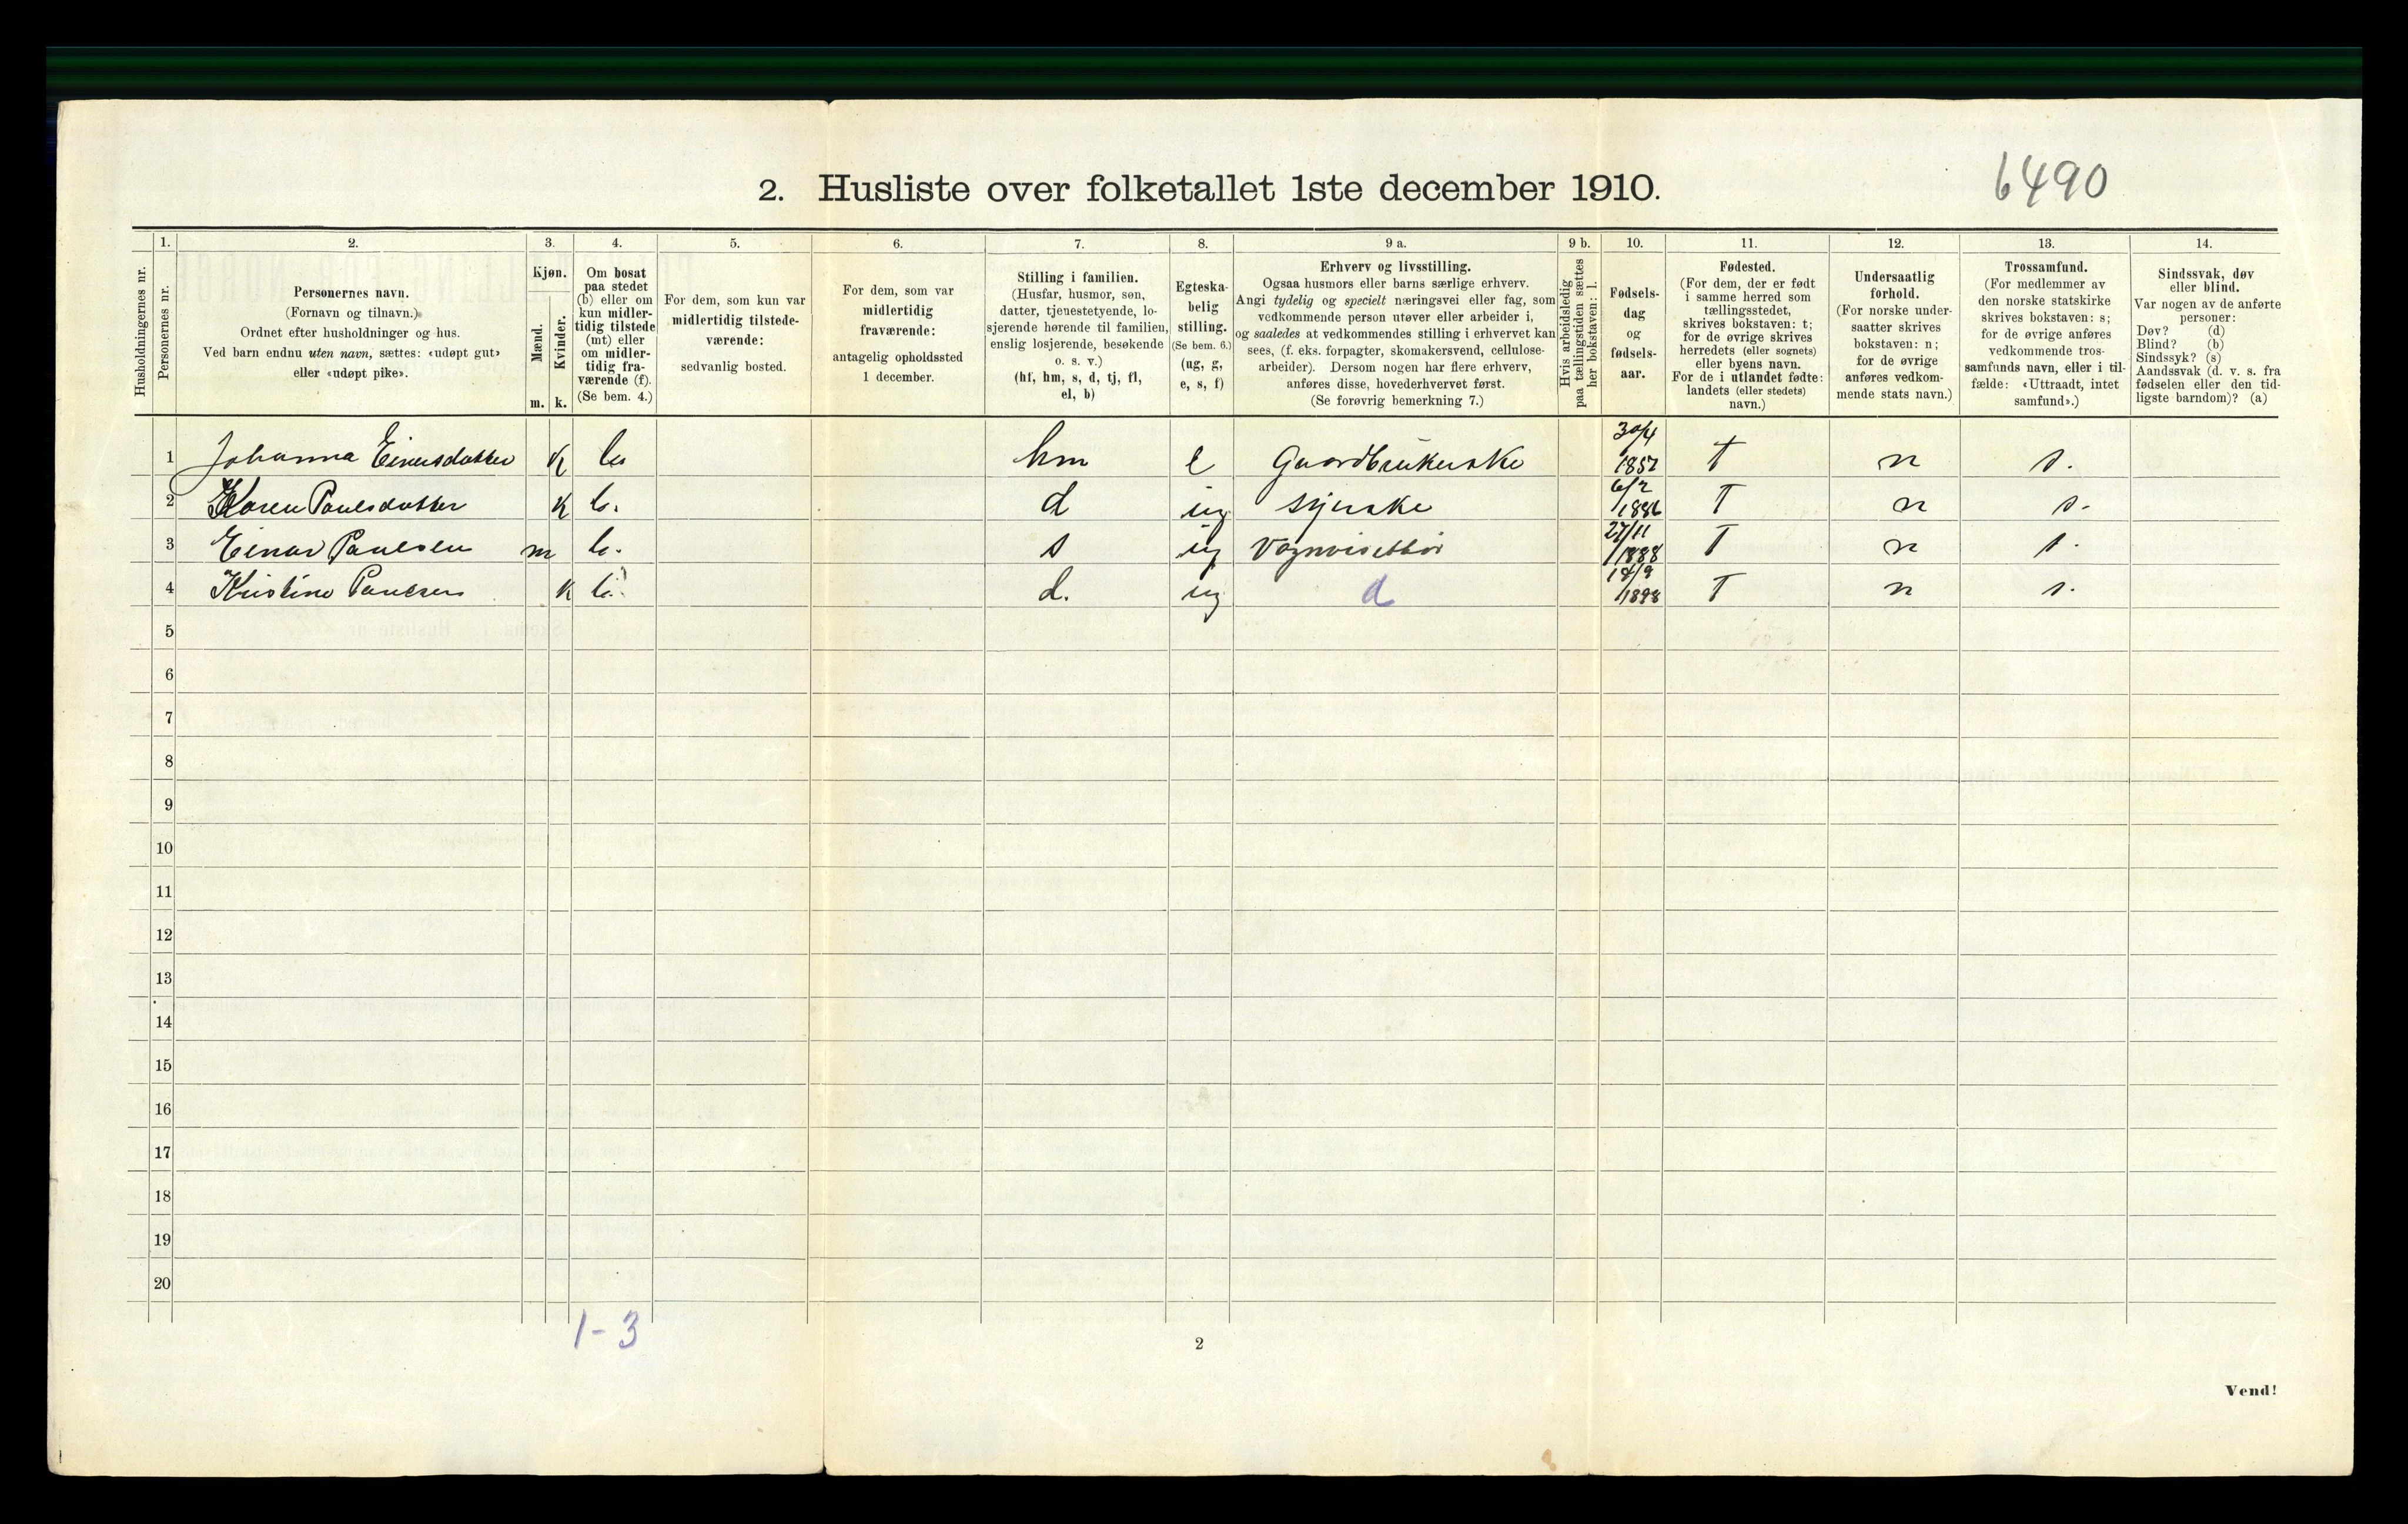 6490
2. Husliste over folketallet 1ste december 1910.
1. 2. 3. 4. 5. 6. 7. 8. 9 a. 9 b. 10. 11. 12. 13. 14.
Husholdningernes nr.
Personernes nr.
Personernes navn.
(Fornavn og tilnavn.)
Ordnet efter husholdninger og hus.
Ved barn endnu uten navn, sættes: «udøpt gut»
eller «udøpt pike».
Kjøn.
Mænd.
Kvinder.
m. k.
Om bosat
paa stedet
(b) eller om
kun midler-
tidig tilstede
(mt) eller
om midler-
tidig fra-
værende (f).
(Se bem. 4.)
For dem, som kun var
midlertidig tilstede-
værende:
sedvanlig bosted.
For dem, som var
midlertidig
fraværende:
antagelig opholdssted
1 december.
Stilling i familien.
(Husfar, husmor, søn,
datter, tjenestetyende, lo-
sjerende hørende til familien,
enslig losjerende, besøkende
o. s. v.)
(hf, hm, s, d, tj, fl,
el, b)
Egteska-
belig
stilling.
(Se bem. 6.)
(ug, g,
e, s, f)
Erhverv og livsstilling.
Ogsaa husmors eller barns særlige erhverv.
Angi tydelig og specielt næringsvei eller fag, som
vedkommende person utøver eller arbeider i,
og saaledes at vedkommendes stilling i erhvervet kan
sees, (f. eks. forpagter, skomakersvend, cellulose-
arbeider). Dersom nogen har flere erhverv,
anføres disse, hovederhvervet først.
(Se forøvrig bemerkning 7.)
Hvis arbeidsledig
paa tællingstiden sættes
her bokstaven: l.
Fødsels-
dag
og
fødsels-
aar.
Fødested.
(For dem, der er født
i samme herred som
tællingsstedet,
skrives bokstaven: t;
for de øvrige skrives
herredets (eller sognets)
eller byens navn.
For de i utlandet fødte:
landets (eller stedets)
navn.)
Undersaatlig
forhold.
(For norske under-
saatter skrives
bokstaven: n;
for de øvrige
anføres vedkom-
mende stats navn.)
Trossamfund.
(For medlemmer av
den norske statskirke
skrives bokstaven: s;
for de øvrige anføres
vedkommende tros-
samfunds navn, eller i til-
fælde: «Uttraadt, intet
samfund».)
Sindssvak, døv
eller blind.
Var nogen av de anførte
personer:
Døv? (d)
Blind? (b)
Sindssyk? (s)
Aandssvak (d. v. s. fra
fødselen eller den tid-
ligste barndom)? (a)
1 Johanna Einersdatter K b hm e Gaardbrukerske 30/4 1857 t n s.
2 Karen Paulsdatter K b. d ug syerske 6/2 1886 T n s.
3 Einar Paulsen m b. s ug 27/11 1888 T n s.
4 Kristine Paulsen K b. d. ug d 18/9 1898 T n s.
5
6
7
8
9
10
11
12
13
14
15
16
17
18
19
20
1-3
2
Vend!